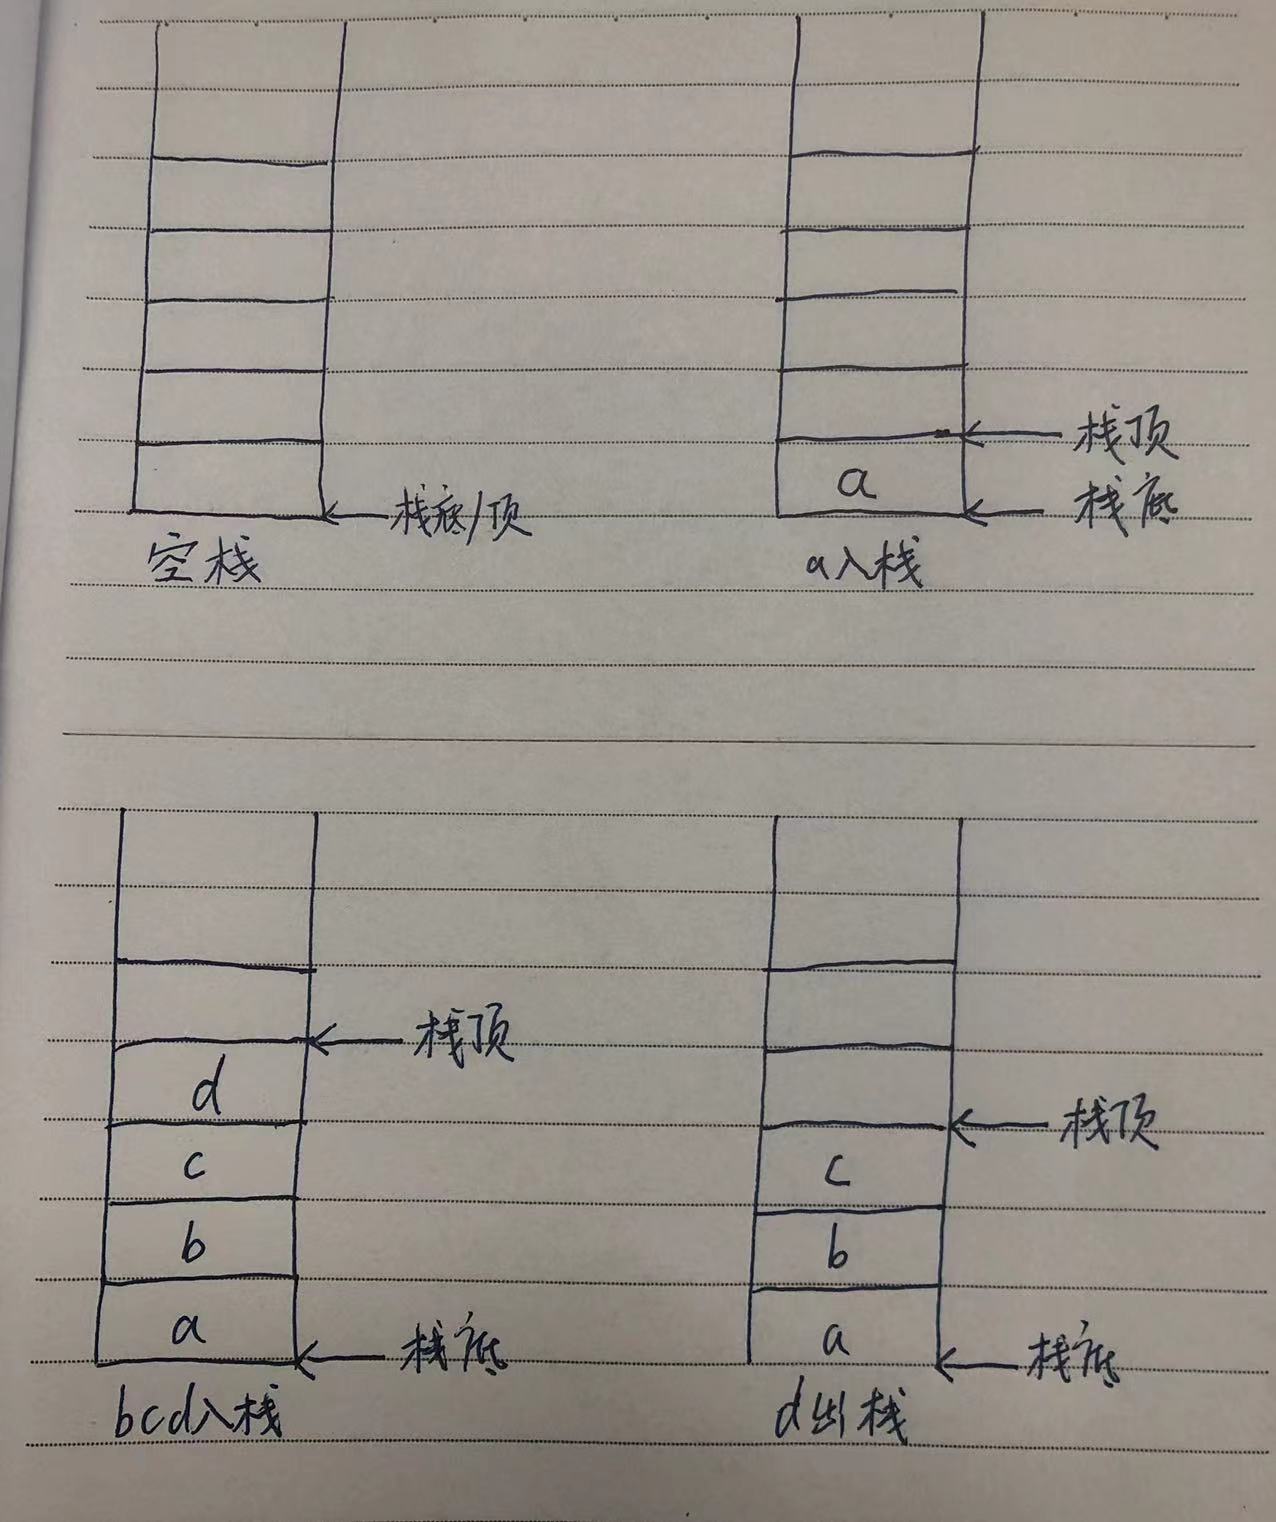 栈底/顶
空栈
栈顶
a
栈底
a入栈
栈顶
d
c
b
a
栈底
bcd入栈
栈顶
c
b
a
栈底
d出栈